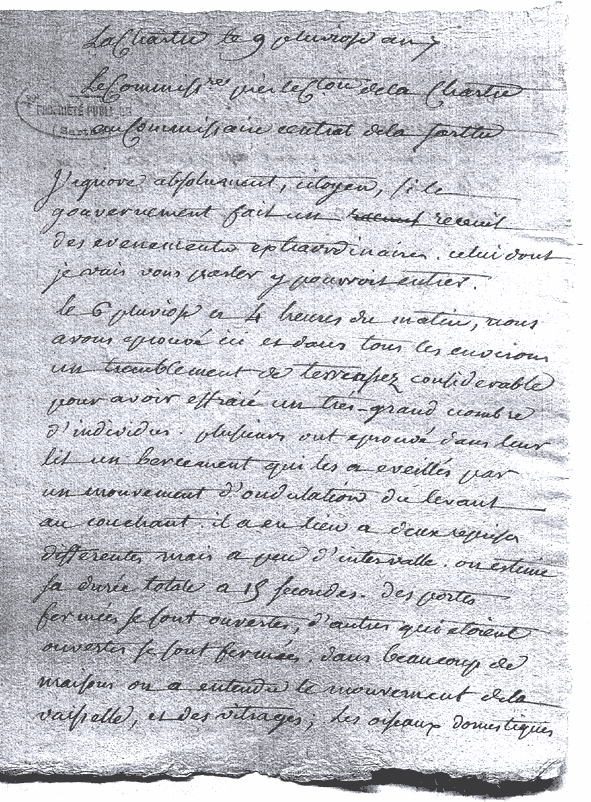 La Chartre le 9 pluviose an 7
Le Commissre près le Cton de la Chartre
PROPRIÉTÉ PUBLIQUE
(Sarthe)
au Commissaire central de la Sarthe
J'ignore absolument, citoyen, si le
gouvernement fait un recueil
des evenements extraordinaires. celui dont
je vais vous parler y pourroit entrer.
le 6 pluviose a 4 heures du matin, nous
avons eprouvé ici et dans tous les environs
un tremblement de terre assez considerable
pour avoir effraié un très-grand nombre
d'individus. plusieurs ont eprouvé dans leur
lit un bercement qui les a eveillés par
un mouvement d'ondulation du levant
au couchant. il a eu lieu a deux reprises
differentes mais a peu d'intervalle. on estime
sa durée totale a 15 secondes. des portes
fermées se sont ouvertes, d'autres qui etoient
ouvertes se sont fermées. dans beaucoup de
maisons on a entendu le mouvement de la
vaisselle, et des vitrages; les oiseaux domestiques